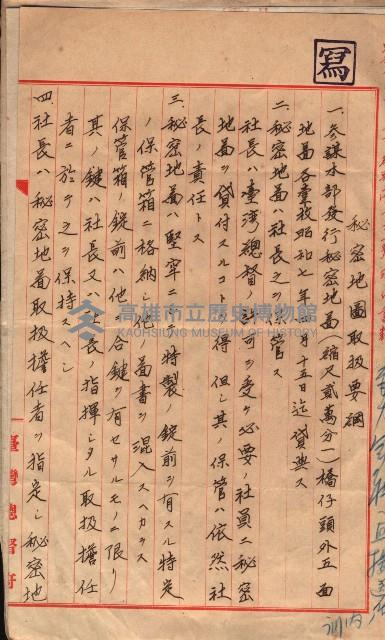 寫
秘密地圖取扱要綱
一、参謀本部発行秘密地圖(縮尺貳萬分一)橋仔頭外五面
地圖各壹枚昭和七年 月十五日迄貸與ス
二、秘密地圖ハ社長之ヲ保管ス
社長ハ臺灣總督ノ 可ヲ受ケ必要ノ社員ニ秘密
地圖ヲ貸付スルコトヲ得但シ其ノ保管ハ依然社
長ノ責任トス
三、秘密地圖ハ堅牢ニ 特製ノ錠前ヲ有スル特定
ノ保管箱ニ格納シ他ノ圖書ヲ混入スヘカラス
保管箱ノ錠前ハ他ニ合鍵ヲ有セサルモノニ限リ
其ノ鍵ハ社長又ハ社長ノ指揮シタル取扱擔任
者ニ於テ之ヲ保持スヘシ
四、社長ハ秘密地圖取扱擔任者ヲ指定シ秘密地
臺灣總督府
高雄市立歷史博物館
KAOHSIUNG MUSEUM OF HISTORY